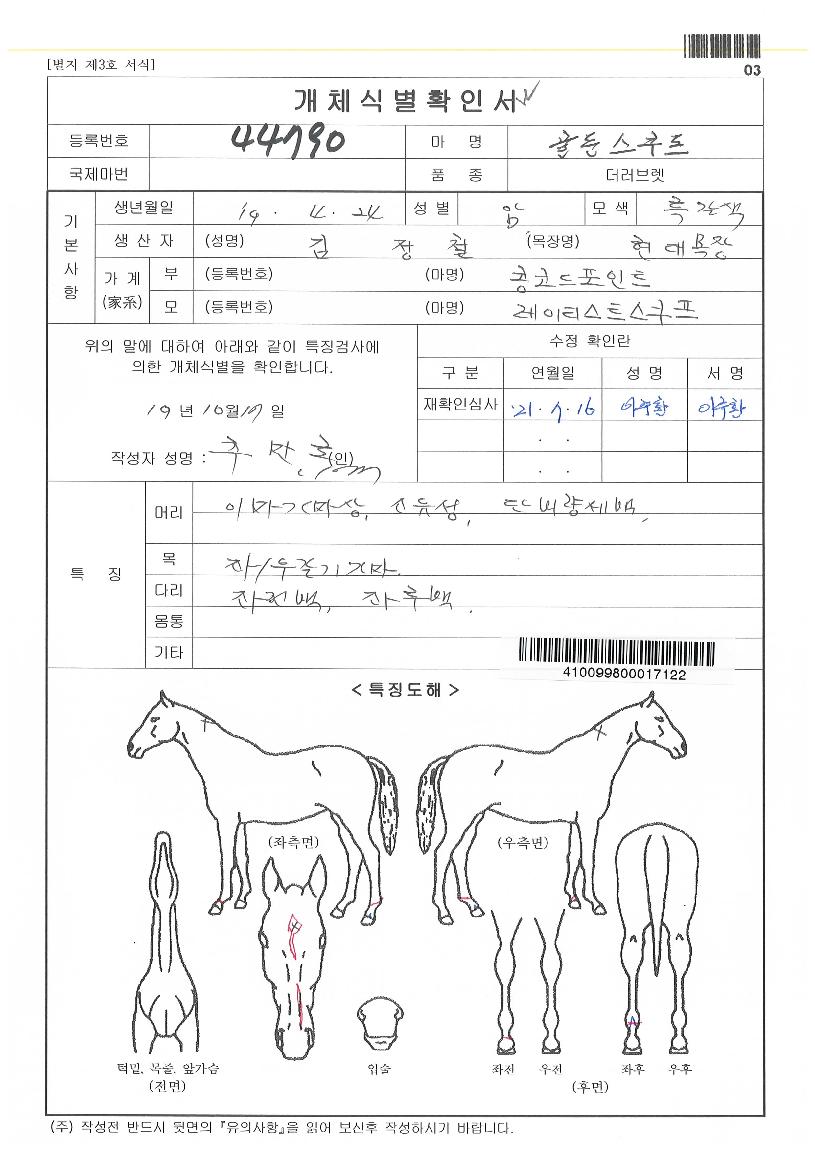 [별지 제3호 서식]
03
개체식별확인서
등록번호 44790 마 명 골든스쿠프
국제마번 품 종 더러브렛
기본사항
생년월일 19. 4. 24 성별 암 모색 흑갈색
생산자 (성명) 김 정 철 (목장명) 현대목장
가계(家系) 부 (등록번호) (마명) 콩코드포인트
모 (등록번호) (마명) 레이티스트스쿠프
위의 말에 대하여 아래와 같이 특징검사에
의한 개체식별을 확인합니다.
19년 10월 17일
작성자 성명 : (인)
수정 확인란
구분 연월일 성명 서명
재확인심사 '21. 7. 16 이주환 이주환
. .
. .
특 징
머리 이마가마상, 소유성, 단비량세백,
목 좌/우줄기가마.
다리 좌전백, 좌후백.
몸통
기타
410099800017122
<특징도해>
(좌측면) (우측면)
턱밑, 목줄, 앞가슴 입술 좌전 우전 좌후 우후
(전면) (후면)
(주) 작성전 반드시 뒷면의 『유의사항』을 읽어 보신후 작성하시기 바랍니다.